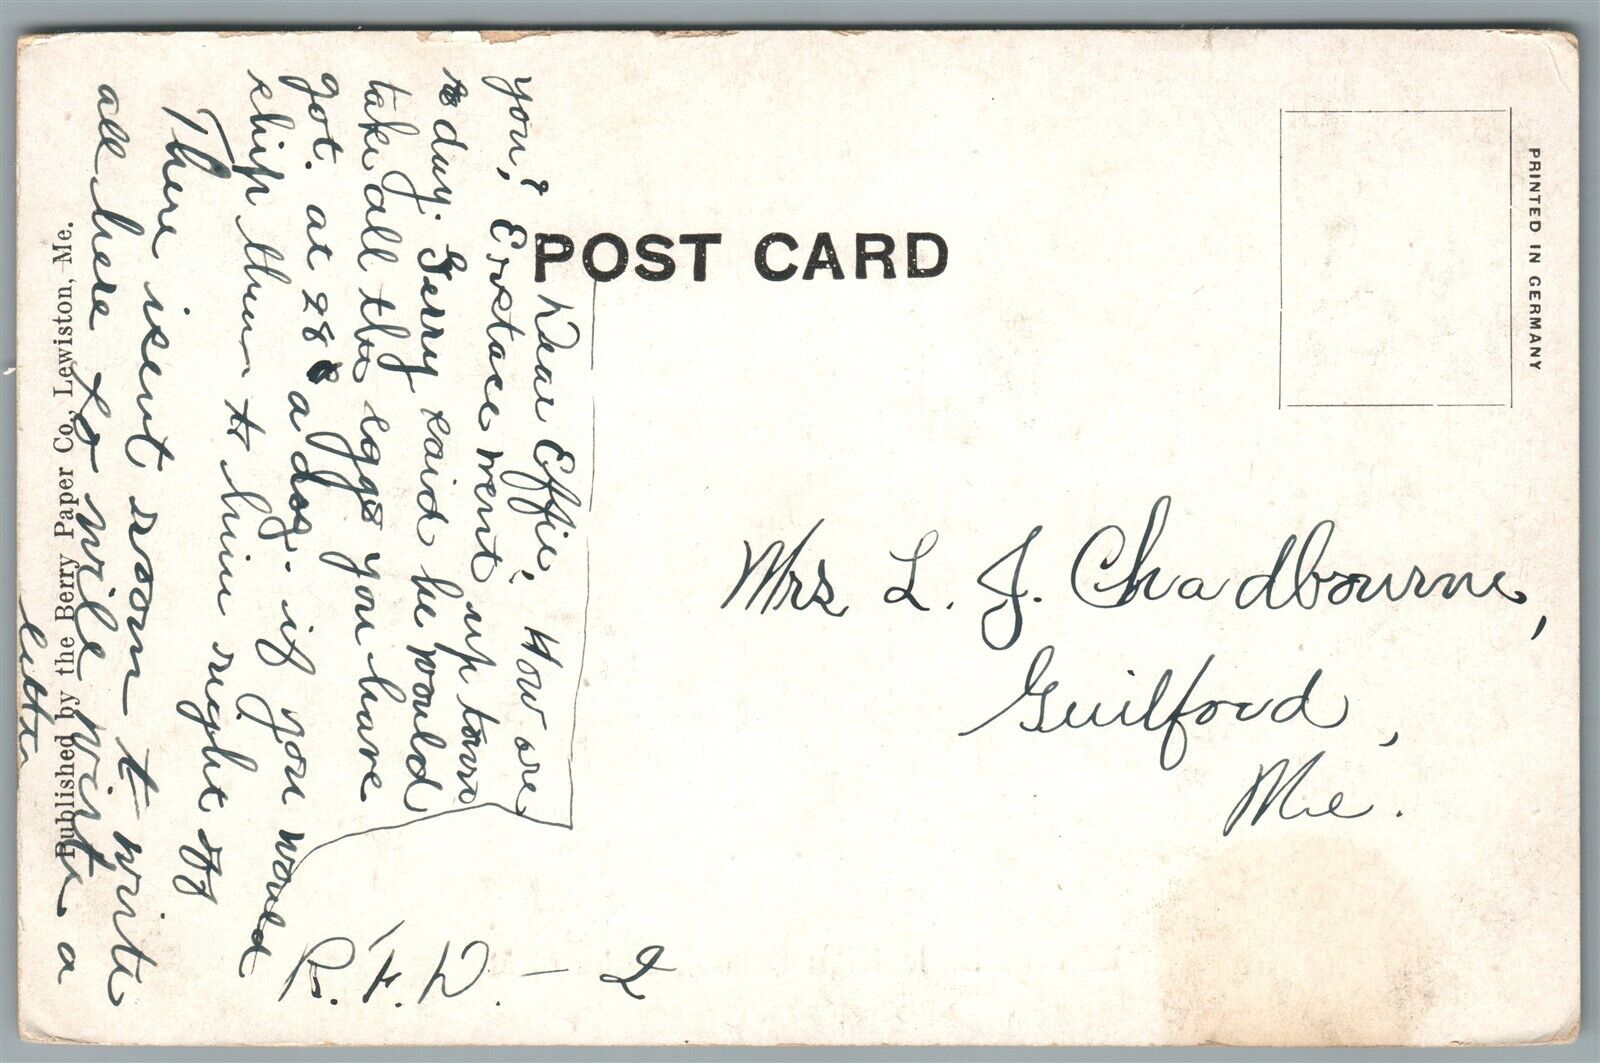 POST CARD
PRINTED IN GERMANY
Dear Effie; How are
you? Erstace went up town
to day. Gerry said he would
take all the eggs you have
got. at 28¢ a doz. if you would
ship them to him right off
There isent room to write
all here so will write a
letter
Mrs L. J. Chadbourne,
Guilford,
Me.
R.F.D. - 2
Published by the Berry Paper Co., Lewiston, Me.